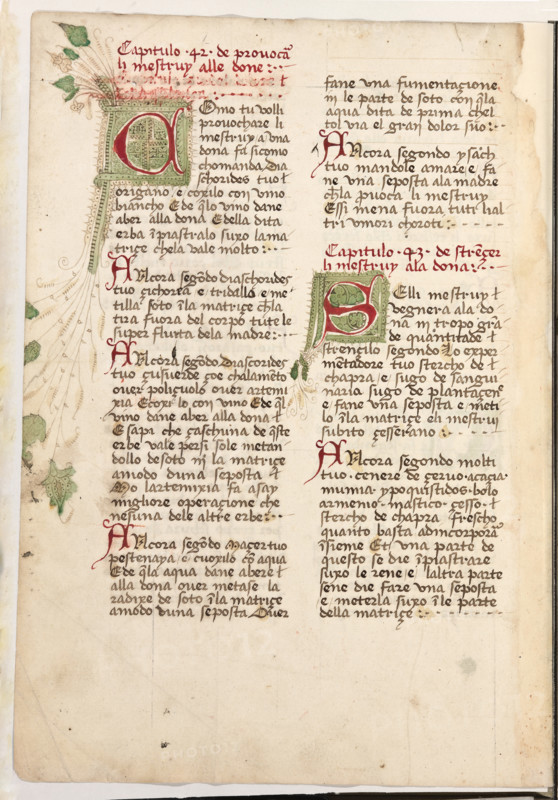 Capitulo · 42 · de prouocã
li mestruy alle done :·
Omo tu volli
prouochare li
mestruy a vna
dona fa sicomo
chomanda dia
schorides tuo ł
origano e coxilo con vino
biancho Ede q̃lo vino dane
aber alla dona Edella dita
erba ĩpiastralo suxo lama
trice chela vale molto :·
ANcora segõdo diaschorides
tuo zichorea e tridello e me
tilla soto ĩla matrice chła
tira fuora del corpo tute le
super fluita dela madre :·
ANcora segõdo Diascorides
tuo cusuerde çoe chalamẽto
ouer poliçuolo ouer artemi
xia Ecoxi lo con vino Ede q̃l
vino dane aber alla dona ł
Esapi che caschuna de q̃ste
erbe vale persi sole metan
dollo desoto ni la matrice
amodo duna seposta ł
Mo lartemixia fa asay
migliore operacione che
nesuna dele altre erbe :·
ANcora segõdo Macer tuo
pestenaya e cuoxilo cõ aqua
Ede q̃la aqua dane abere ł
alla dona ouer metase la
radixe de soto ĩla matrice
amodo duna seposta Ouer
fane vna fumentacione
ni le parte de soto con q̃la
aqua dita de prima chel
tol via el gran dolor suo :·
ANcora segondo ysach
tuo mandole amare e fa
ne vna seposta ala madre
chła puoca li mestruy
Essi mena fuora tuti li al
tri vmori choroti :·
Capitulo · 43 · de strẽcer
li mestruy ala dona :·
Elli mestruy ł
vegnera ala do
na in tropo grã
de quantitade ł
strençilo segondo Lo exper
mẽtadore tuo stercho de ł
chapra e sugo de sangui
naria sugo de plantacen
e fane vna seposta e meti
lo ĩla matrice eli mestruy
subito cesserano :·
ANcora segondo molti
tuo · cenere de ceruo · acacia
mumia · ypoquistidos · bolo
armenio · mastico · cesso · ł
stercho de chapra frescho
quanto basta adincorporã
ĩsieme Et vna parte de
questo se die ĩpiastrare
suxo le rene e laltra parte
sene die fare vna seposta
e meterla suxo ĩle parte
della matrice :·